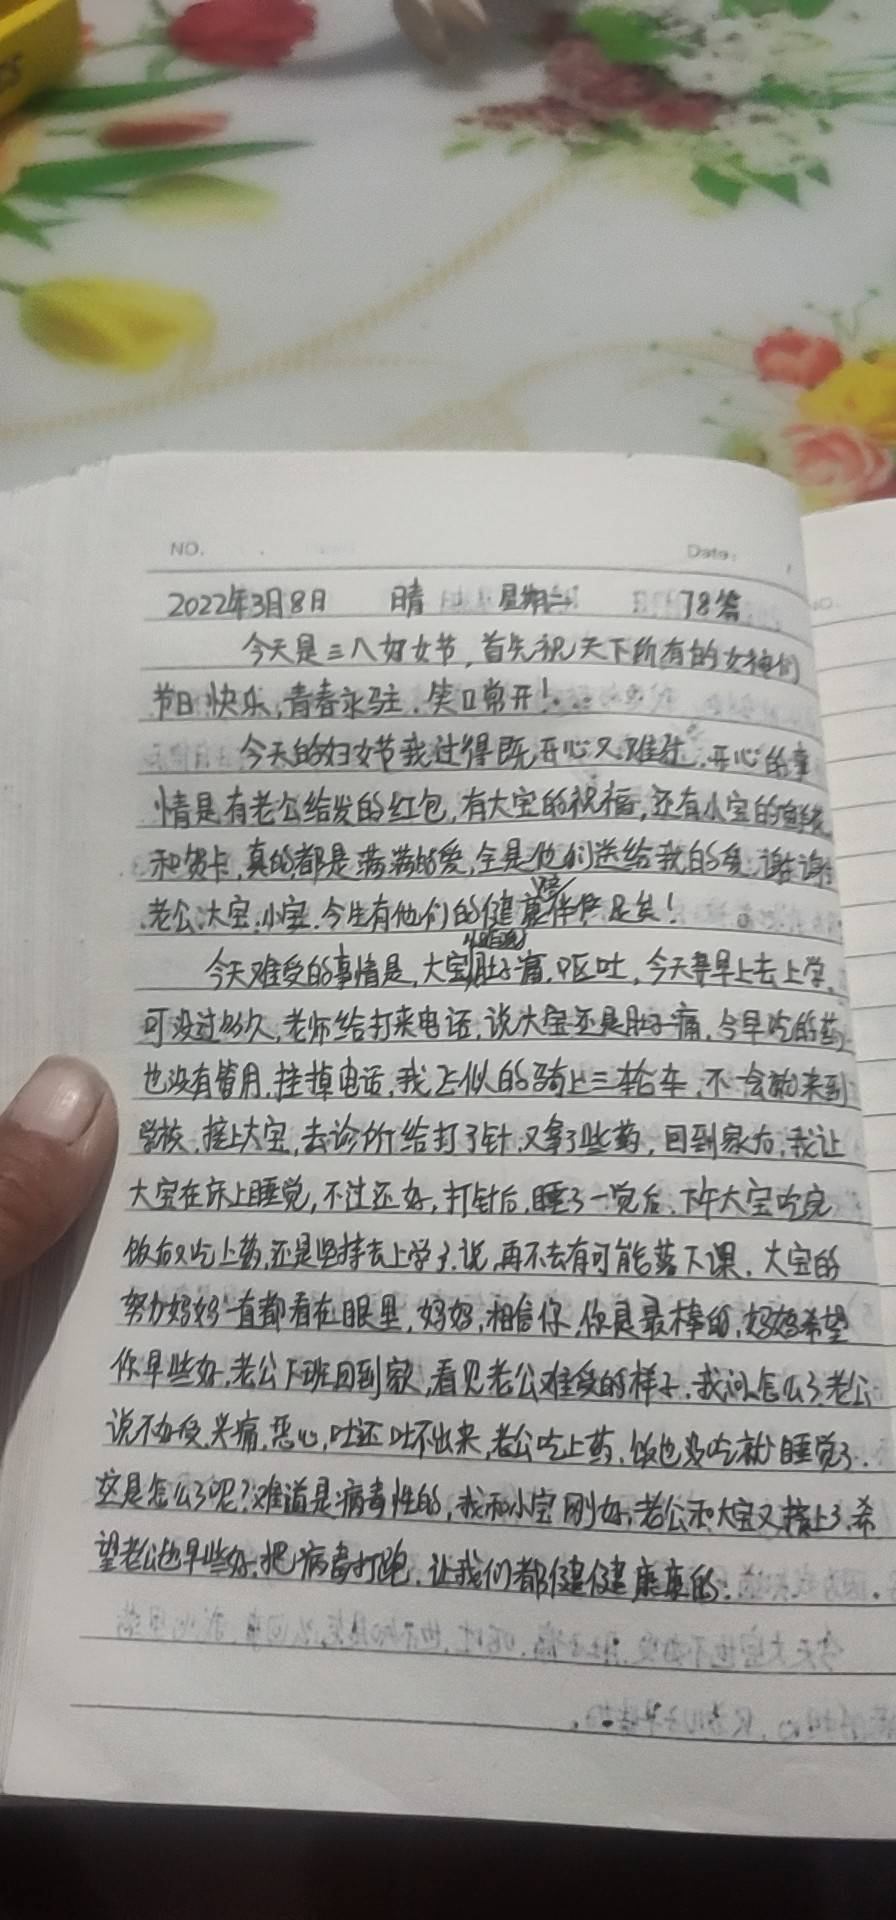 NO.
Date:
2022年3月8日 晴 星期二 78篇
今天是三八妇女节,首先祝天下所有的女神们
节日快乐,青春永驻.笑口常开!
今天的妇女节我过得既开心又难过.开心的事
情是有老公给发的红包,有大宝的祝福,还有小宝的
和贺卡,真的都是满满的爱,全是他们送给我的爱,谢谢
老公,大宝,小宝.今生有他们的健康陪伴足矣!
今天难受的事情是,大宝肚子痛,呕吐,今天早上去上学,
可没过多久,老师给打来电话,说大宝还是肚子痛,今早吃的药
也没有管用,挂掉电话,我飞似的骑上三轮车,不一会就来到
学校,接上大宝,去诊所给打了针,又拿了些药,回到家后,我让
大宝在床上睡觉,不过还好,打针后,睡了一觉后,下午大宝吃完
饭后又吃上药,还是坚持去上学了,说,再不去有可能落下课,大宝的
努力妈妈一直都看在眼里,妈妈,相信你,你是最棒的,妈妈希望
你早些好,老公下班回到家,看见老公难受的样子,我问怎么了,老公
说不舒服,头痛,恶心,吐还吐不出来,老公吃上药,饭也没吃就睡觉了.
这是怎么了呢?难道是病毒性的,我和小宝刚好,老公和大宝又接上了,希
望老公也早些好,把病毒打跑,让我们都健健康康的.